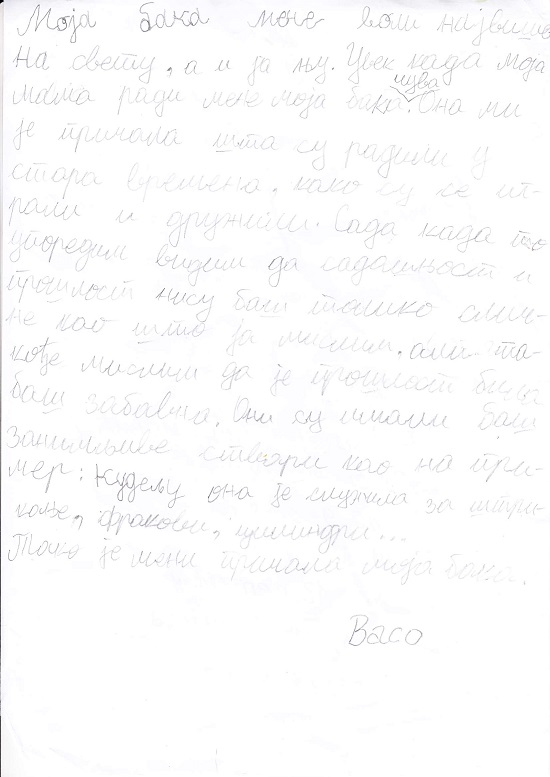 Моја бака мене воли највише
на свету, а и ја њу. Увек када моја
чува
мама ради мене моја бака. Она ми
је причала шта су радили у
стара времена, како су се иг-
рали и дружили. Сада када то
упоредим видим да садашњост и
прошлост нису баш толико слич-
не као што ја мислим, али та-
кође мислим да је прошлост била
баш забавна. Они су имали баш
занимљиве ствари као на при-
мер: Кудељу она је служила за штри-
кање, фракови, цилиндри...
Тако је мени причала моја бака.
Васо